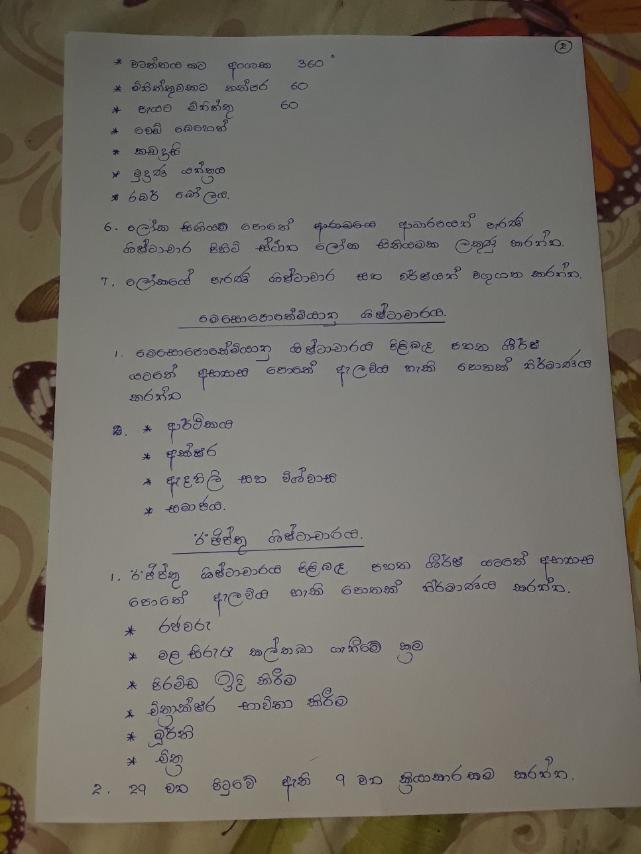 2
* වෘත්තයකට අංශක 360°
* මිනිත්තුවකට තත්පර 60
* පැයට මිනිත්තු 60
* වෙඩි බෙහෙත්
* කඩදාසි
* මුද්‍රණ යන්ත්‍රය
* රබර් බෝලය.
6. ලෝක සිතියම් පොතේ ආධාරයෙන් පැරණි
ශිෂ්ටාචාර පිහිටි ස්ථාන ලෝක සිතියමක ලකුණු කරන්න.
7. ලෝකයේ පැරණි ශිෂ්ටාචාර සහ වර්ෂයන් වගුගත කරන්න.
මෙසොපොතේමියානු ශිෂ්ටාචාරය.
1. මෙසොපොතේමියානු ශිෂ්ටාචාරය පිළිබඳ පහත ශීර්ෂ
යටතේ අභ්‍යාස පොතේ ඇලවිය හැකි පොතක් නිර්මාණය
කරන්න
* ආර්ථිකය
* අක්ෂර
* ඇදහිලි සහ විශ්වාස
* සමාජය.
ඊජිප්තු ශිෂ්ටාචාරය.
1. ඊජිප්තු ශිෂ්ටාචාරය පිළිබඳ පහත ශීර්ෂ යටතේ අභ්‍යාස
පොතේ ඇලවිය හැකි පොතක් නිර්මාණය කරන්න.
* රජවරු
* මළ සිරුරු කල්තබා ගැනීමේ ක්‍රම
* පිරමිඩ ඉදි කිරීම
* චිත්‍රාක්ෂර භාවිතා කිරීම
* මූර්ති
* චිත්‍ර
2. 29 වන පිටුවේ ඇති 9 වන ක්‍රියාකාරකම කරන්න.